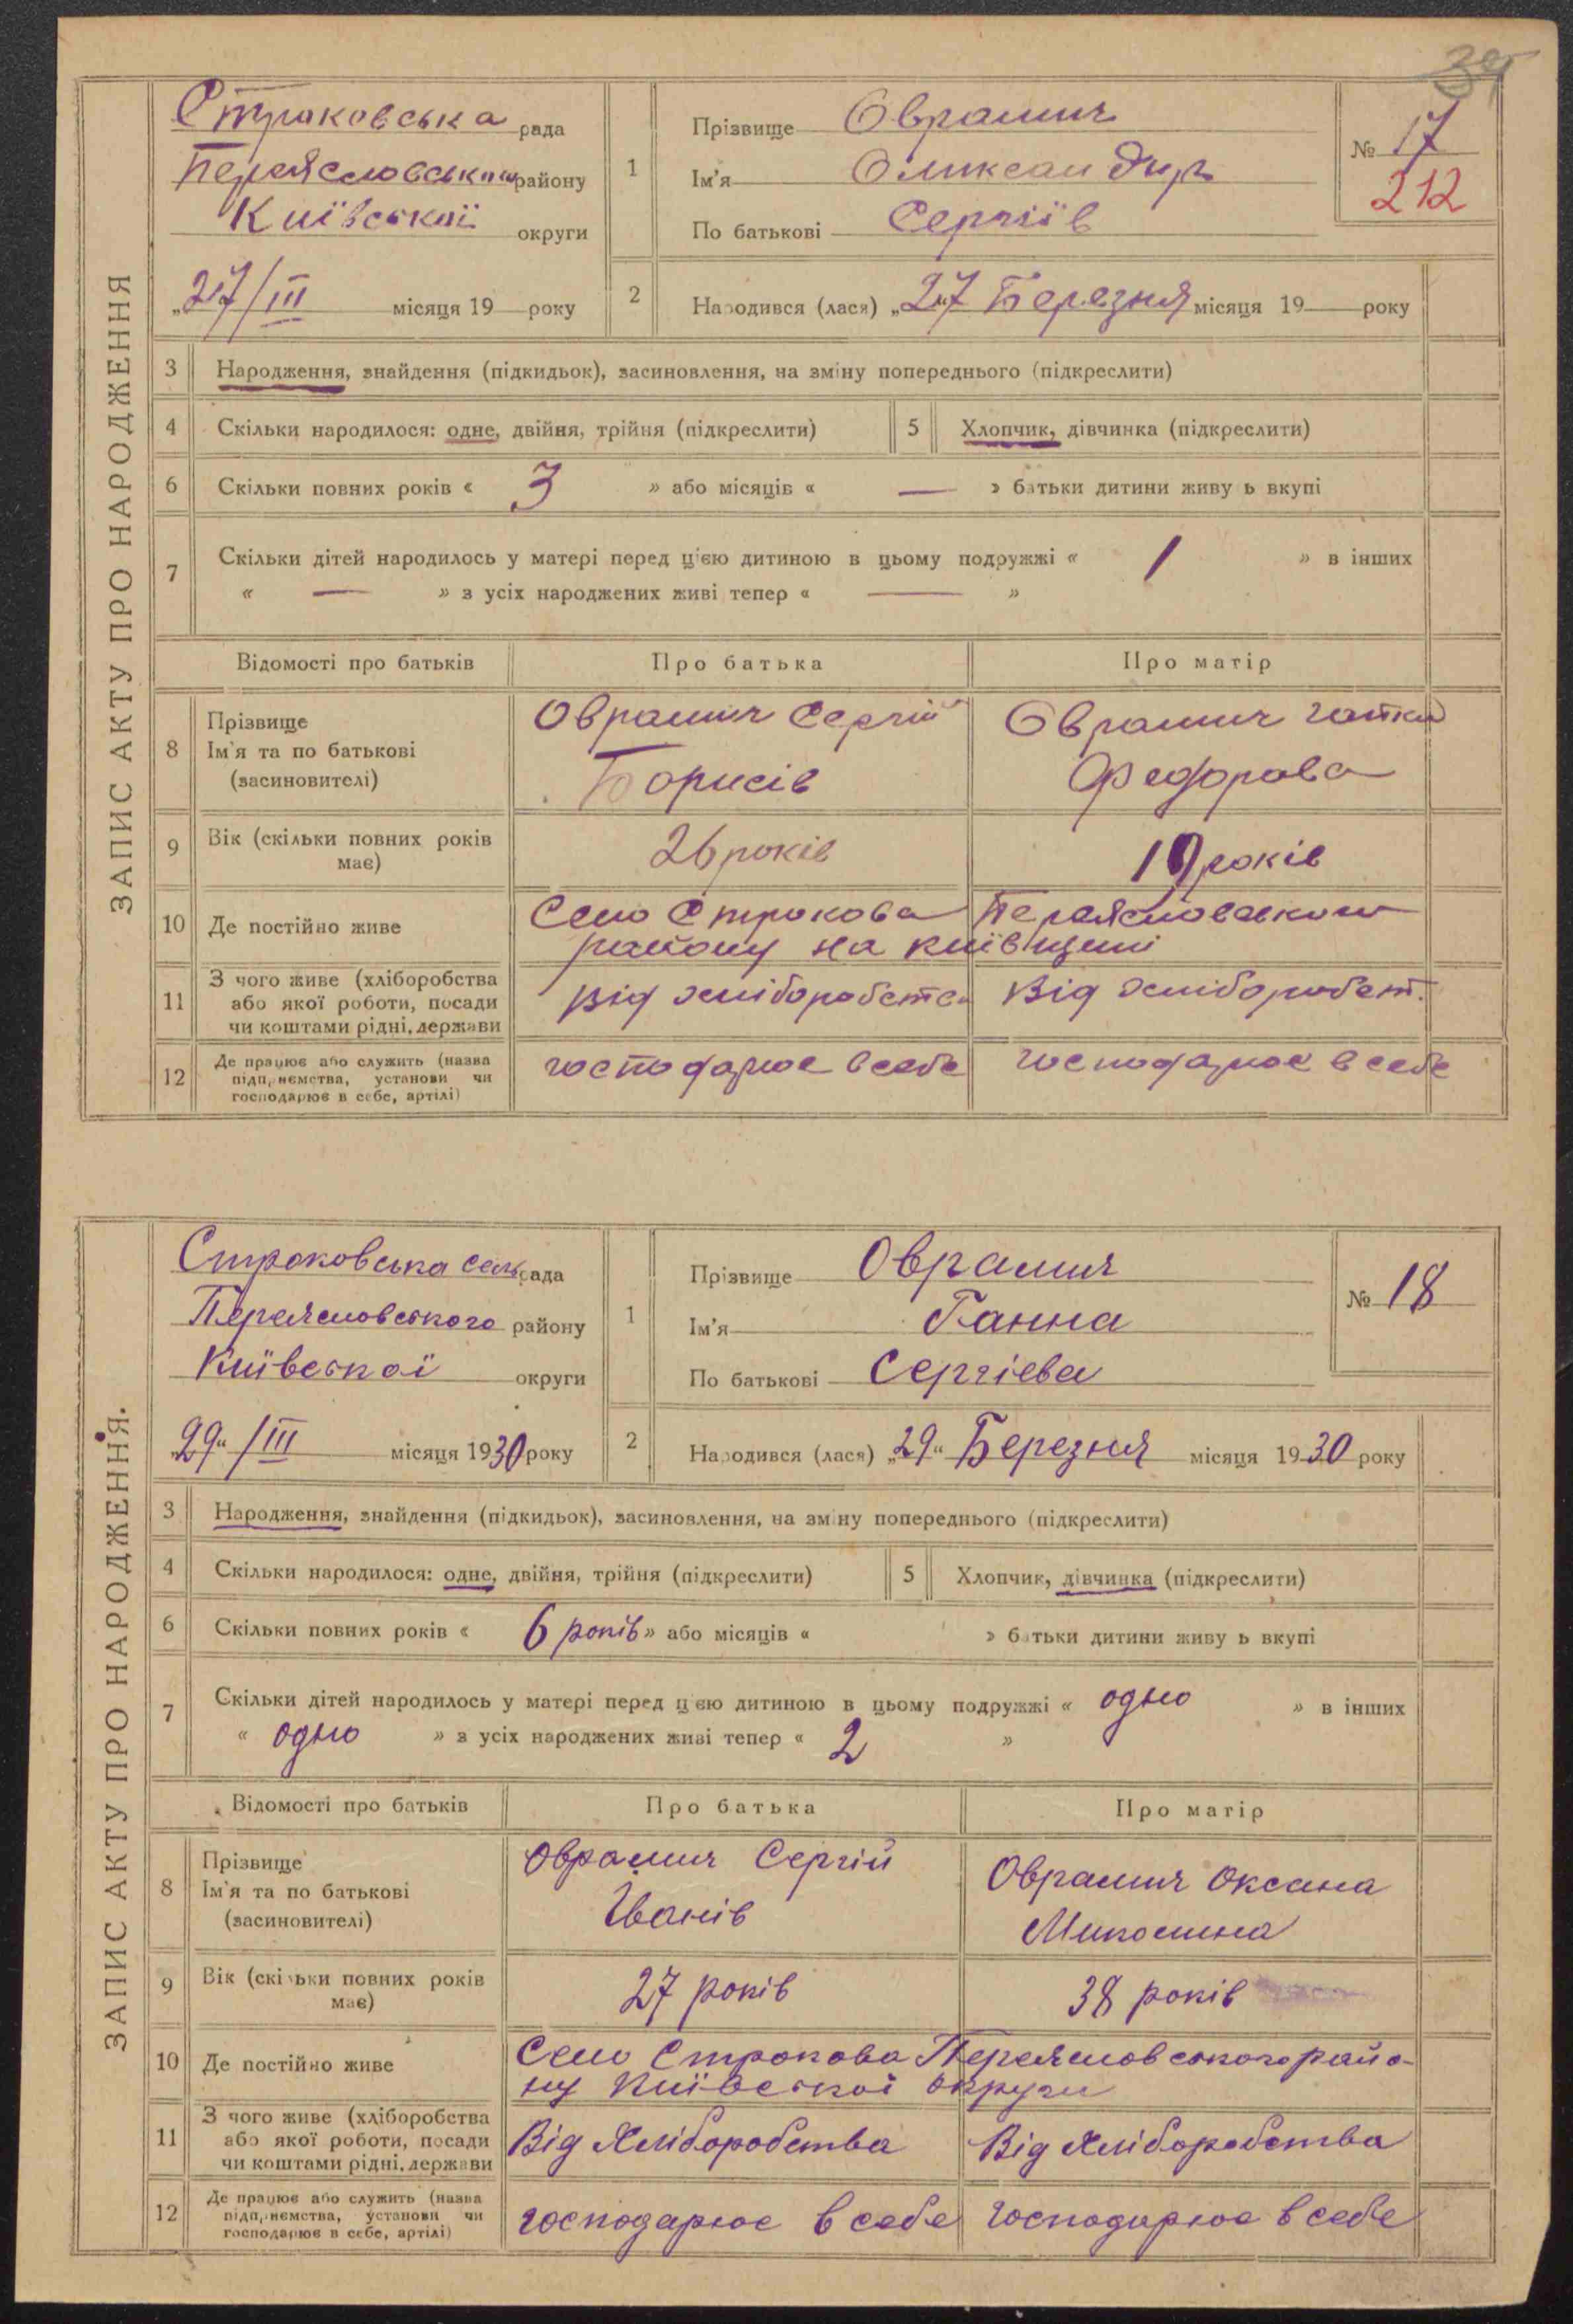 39
ЗАПИС АКТУ ПРО НАРОДЖЕННЯ
Строковська рада
Переясловським району
Київської округи
„27/III місяця 19 року
1
Прізвище Оврамич
Ім'я Оликсандир
По батькові Сергіїв
№ 17
212
2
Народився (лася) „27 Березня місяця 19 року
3 Народження, знайдення (підкидьок), засиновлення, на зміну попереднього (підкреслити)
4 Скільки народилося: одне, двійня, трійня (підкреслити)
5 Хлопчик, дівчинка (підкреслити)
6 Скільки повних років « 3 » або місяців « — » батьки дитини живу ь вкупі
7 Скільки дітей народилось у матері перед цією дитиною в цьому подружжі « 1 » в інших
« — » з усіх народжених живі тепер « — »
Відомості про батьків Про батька Про матір
8 Прізвище
Ім'я та по батькові
(засиновителі)
Оврамич Сергій
Борисів
Оврамич
Федорова
9 Вік (скільки повних років
має)
26 років
років
10 Де постійно живе
Село Строкова Переясловським
району на Київщині
11 З чого живе (хліборобства
або якої роботи, посади
чи коштами рідні, держави
Від хліборобства
Від хліборобст.
12 Де працює або служить (назва
підприємства, установи чи
господарює в себе, артілі)
господарює в себе
господарює в себе
ЗАПИС АКТУ ПРО НАРОДЖЕННЯ.
Строковська сель рада
Переясловського району
Київської округи
„29" /III місяця 1930 року
1
Прізвище Оврамич
Ім'я Ганна
По батькові Сергієва
№ 18
2
Народився (лася) „29" Березня місяця 1930 року
3 Народження, знайдення (підкидьок), засиновлення, на зміну попереднього (підкреслити)
4 Скільки народилося: одне, двійня, трійня (підкреслити)
5 Хлопчик, дівчинка (підкреслити)
6 Скільки повних років « 6 років » або місяців « » батьки дитини живу ь вкупі
7 Скільки дітей народилось у матері перед цією дитиною в цьому подружжі « одно » в інших
« одно » з усіх народжених живі тепер « 2 »
Відомості про батьків Про батька Про матір
8 Прізвище
Ім'я та по батькові
(засиновителі)
Оврамич Сергій
Іванів
Оврамич Оксана
Миколина
9 Вік (скільки повних років
має)
27 років
38 років
10 Де постійно живе
Село Строкова Переясловського райо-
ну Київської округи
11 З чого живе (хліборобства
або якої роботи, посади
чи коштами рідні, держави
Від Хліборобства
Від Хліборобства
12 Де працює або служить (назва
підприємства, установи чи
господарює в себе, артілі)
господарює в себе
господарює в себе